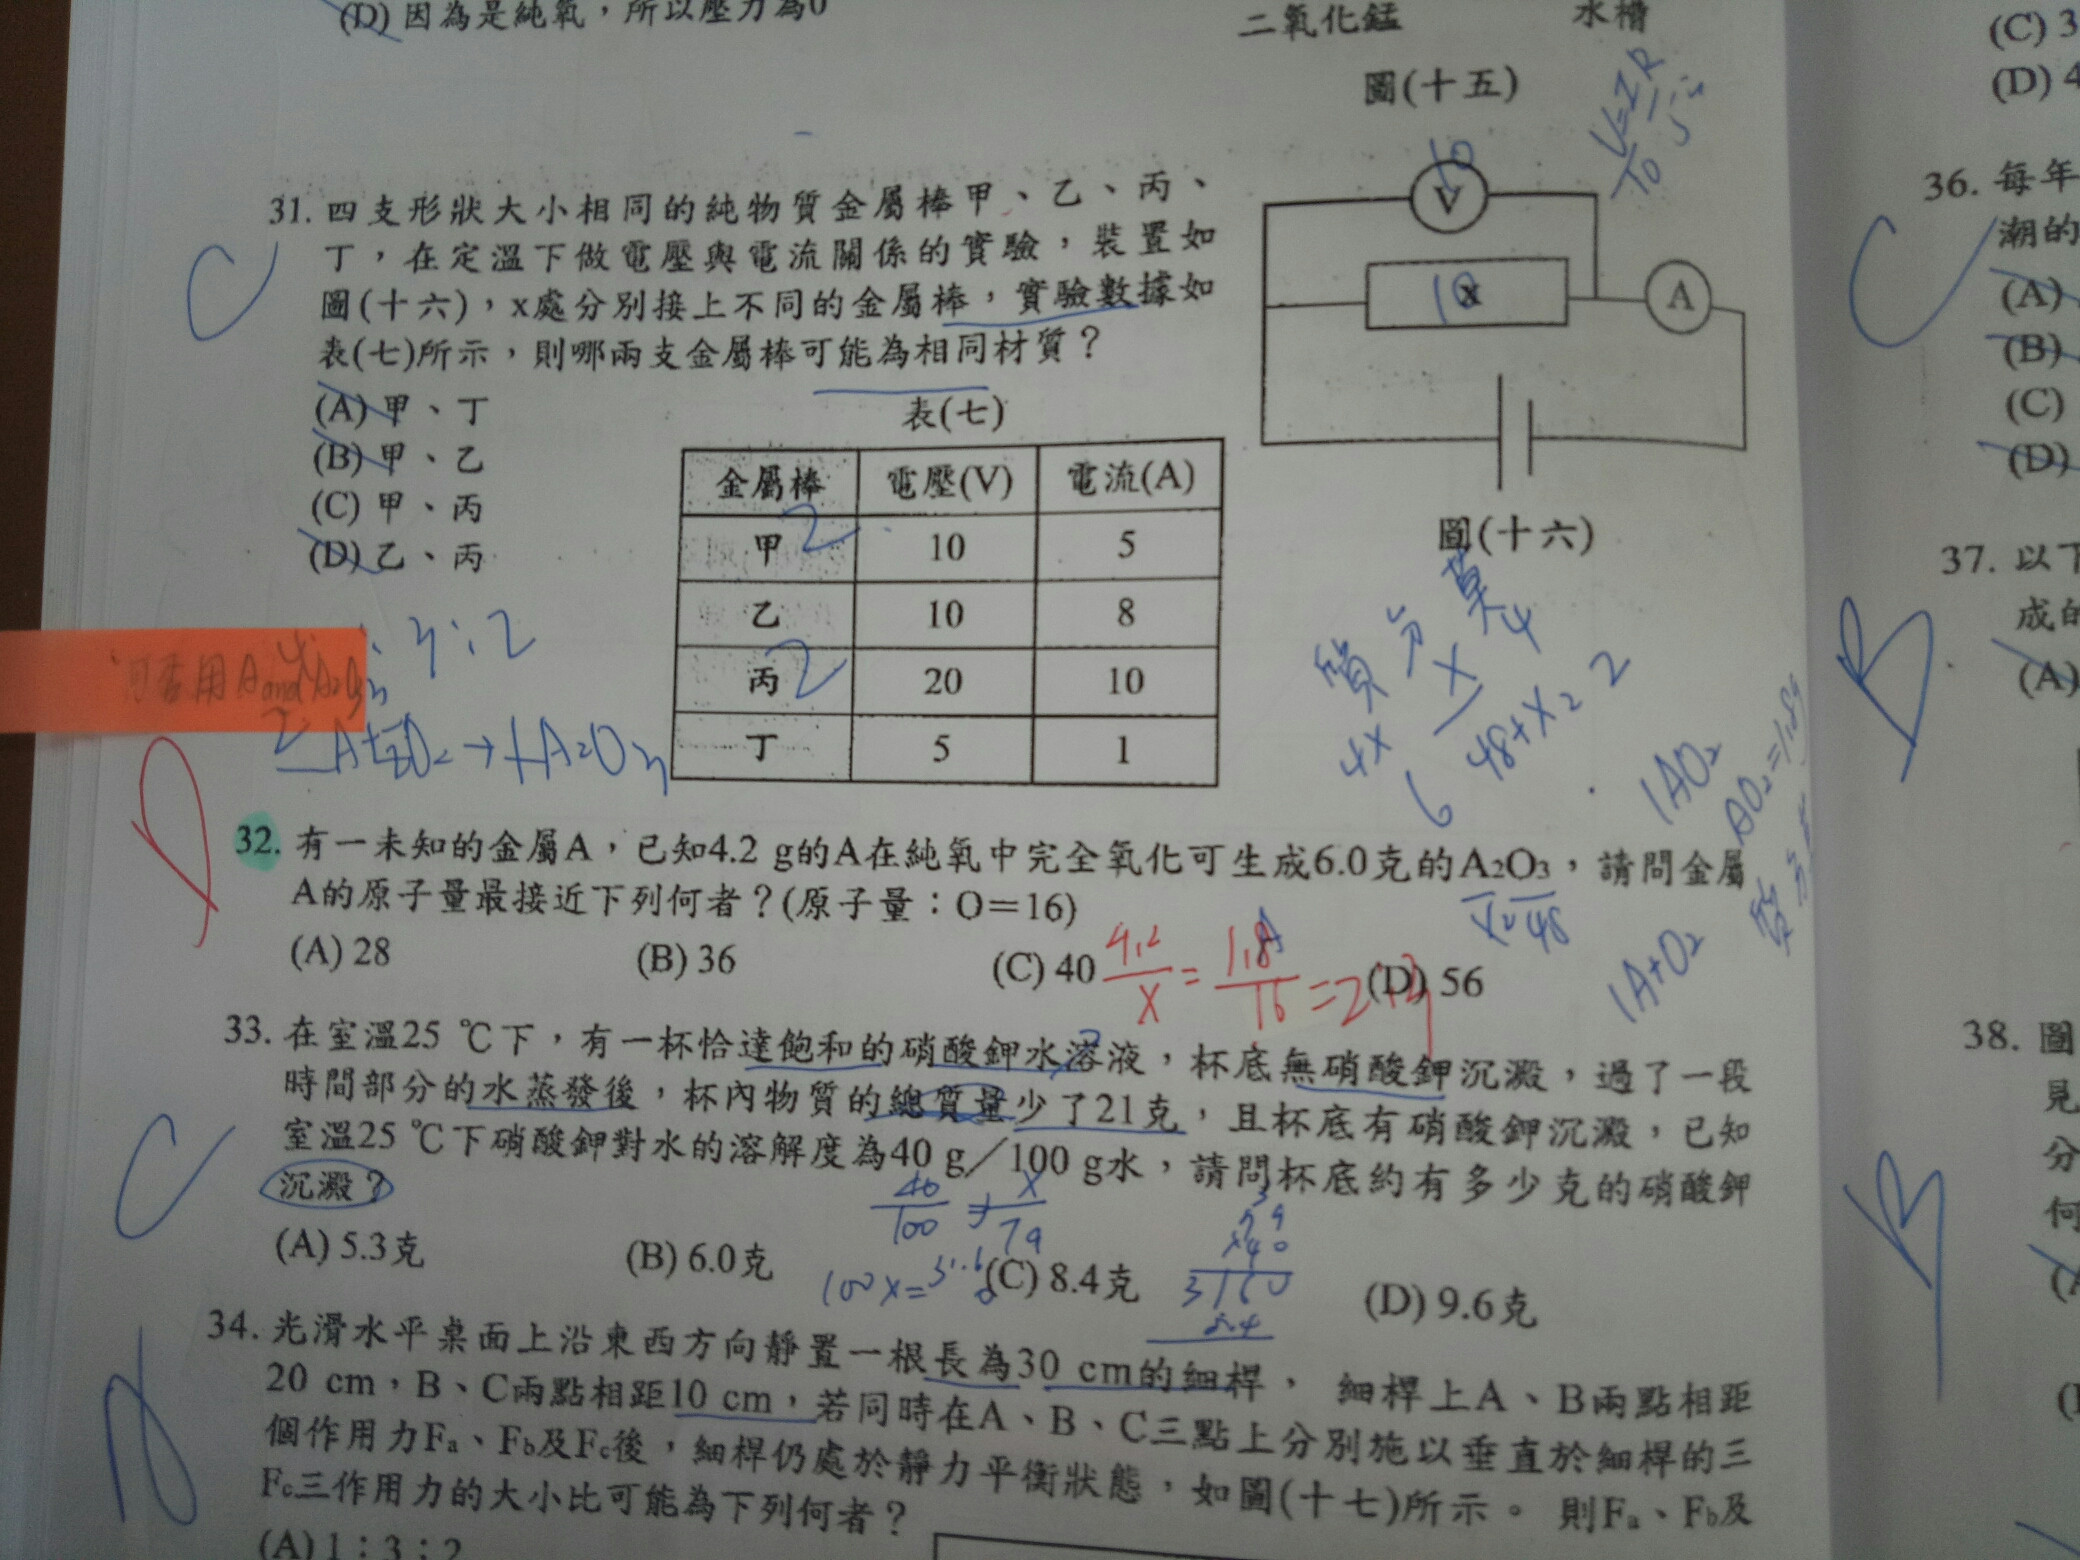 (D) 因為是純氧，所以壓力為0
二氧化錳 水槽
圖(十五)
V=IR
10
V
10
x
A
圖(十六)
31. 四支形狀大小相同的純物質金屬棒甲、乙、丙、
丁，在定溫下做電壓與電流關係的實驗，裝置如
圖(十六)，x處分別接上不同的金屬棒，實驗數據如
表(七)所示，則哪兩支金屬棒可能為相同材質？
C
(A) 甲、丁
(B) 甲、乙
(C) 甲、丙
(D) 乙、丙
表(七)
金屬棒 電壓(V) 電流(A)
甲 2 10 5
乙 10 8
丙 2 20 10
丁 5 1
可否用A and A2O3
4:3:2
質 分 莫
4x
6
x/48+x2
2
1AO2
AO2=1.8g
1A+O2
D
32. 有一未知的金屬A，已知4.2 g的A在純氧中完全氧化可生成6.0克的A2O3，請問金屬
A的原子量最接近下列何者？(原子量：O＝16)
x2 48
(A) 28 (B) 36 (C) 40 (D) 56
4.2/x = 1.8/16 = 2:3
33. 在室溫25 ℃下，有一杯恰達飽和的硝酸鉀水溶液，杯底無硝酸鉀沉澱，過了一段
時間部分的水蒸發後，杯內物質的總質量少了21克，且杯底有硝酸鉀沉澱，已知
室溫25 ℃下硝酸鉀對水的溶解度為40 g／100 g水，請問杯底約有多少克的硝酸鉀
沉澱？
C
40/100 = x/79
100x=31.6
79
x40
3160
8.4
(A) 5.3克 (B) 6.0克 (C) 8.4克 (D) 9.6克
34. 光滑水平桌面上沿東西方向靜置一根長為30 cm的細桿，細桿上A、B兩點相距
20 cm，B、C兩點相距10 cm，若同時在A、B、C三點上分別施以垂直於細桿的三
個作用力Fa、Fb及Fc後，細桿仍處於靜力平衡狀態，如圖(十七)所示。則Fa、Fb及
Fc三作用力的大小比可能為下列何者？
(A) 1：3：2
(C) 3
(D) 4
36. 每年
潮的
C
(A)
(B)
(C)
(D)
37. 以下
成的
B
(A)
38. 圖
見
分
何
B
(A